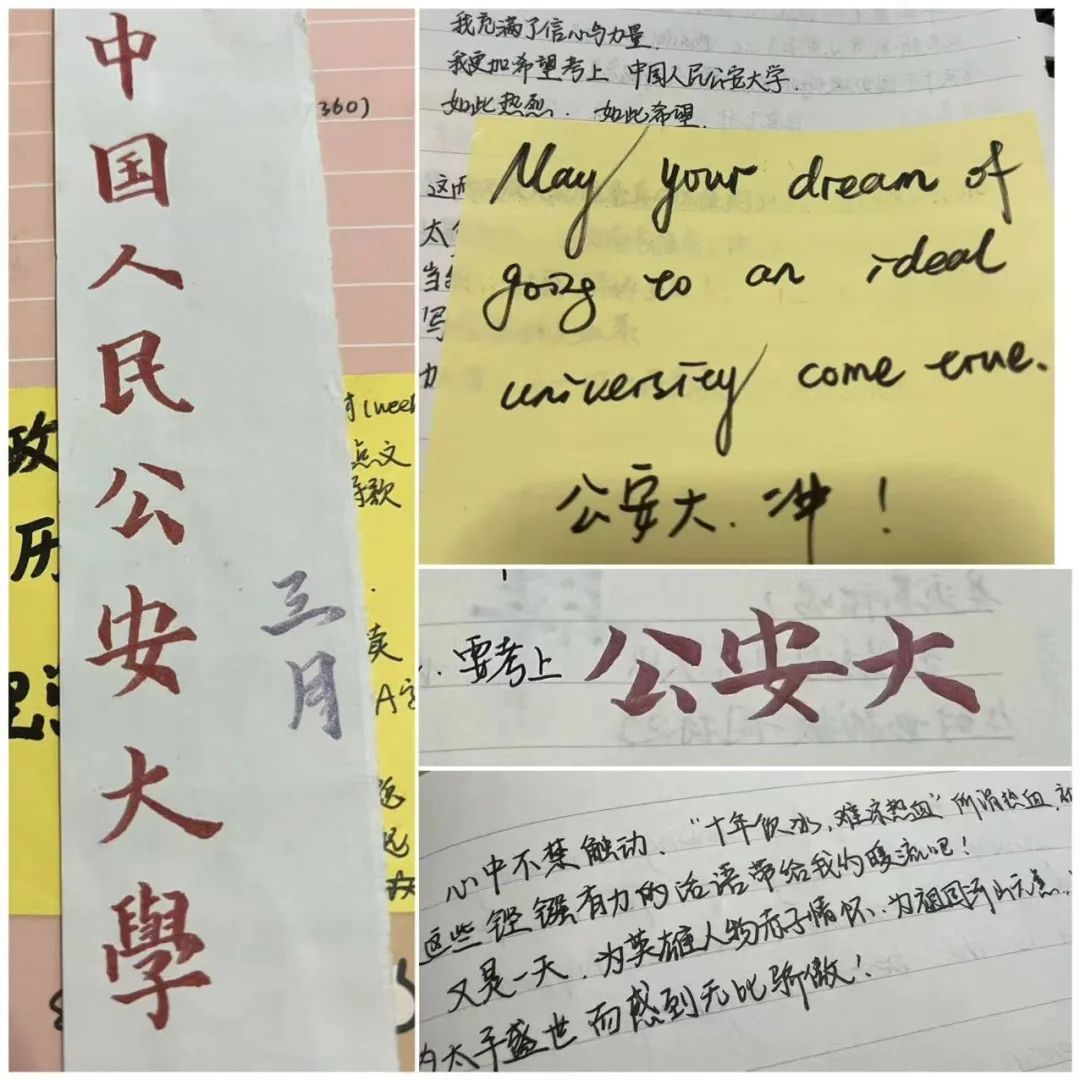 中国人民公安大學
三月
360)
政
历
点文
我充满了信心与力量.
我更加希望考上 中国人民公安大学.
如此热烈. 如此希望.
May your dream of
going to an ideal
university come true.
公安大. 冲!
要考上 公安大
心中不禁触动. “十年饮冰, 难凉热血” 所谓热血,
这些铿锵有力的话语带给我的暖流吧!
又是一天. 为英雄人物赤子情怀. 为祖国
为太平盛世而感到无比骄傲!